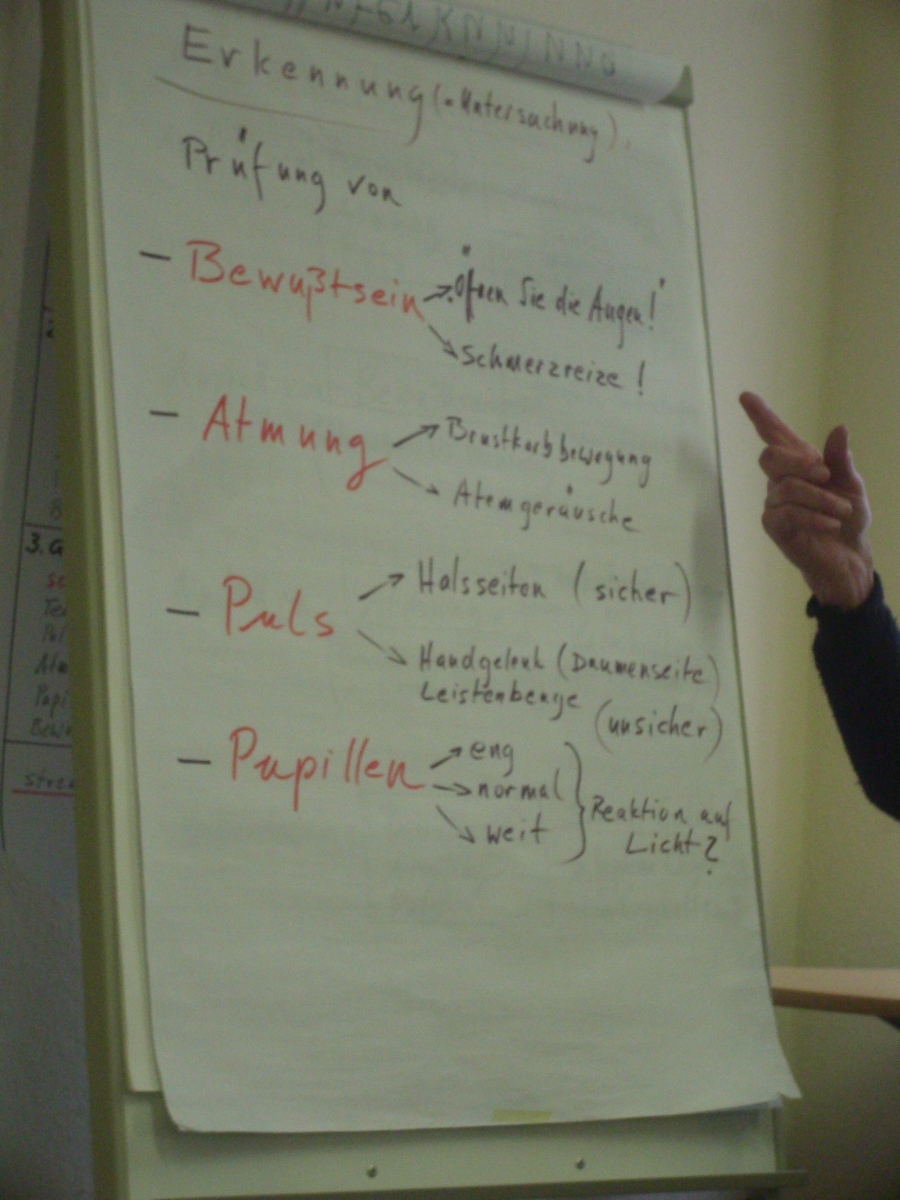 Erkennung (= Untersuchung).
Prüfung von
– Bewußtsein
"Öfnen Sie die Augen!"
Schmerzreize!
– Atmung
Brustkorbbewegung
Atemgeräusche
– Puls
Halsseiten (sicher)
Handgelenk (Daumenseite)
Leistenbeuge
(unsicher)
– Pupillen
eng
normal
weit
Reaktion auf
Licht?
3.